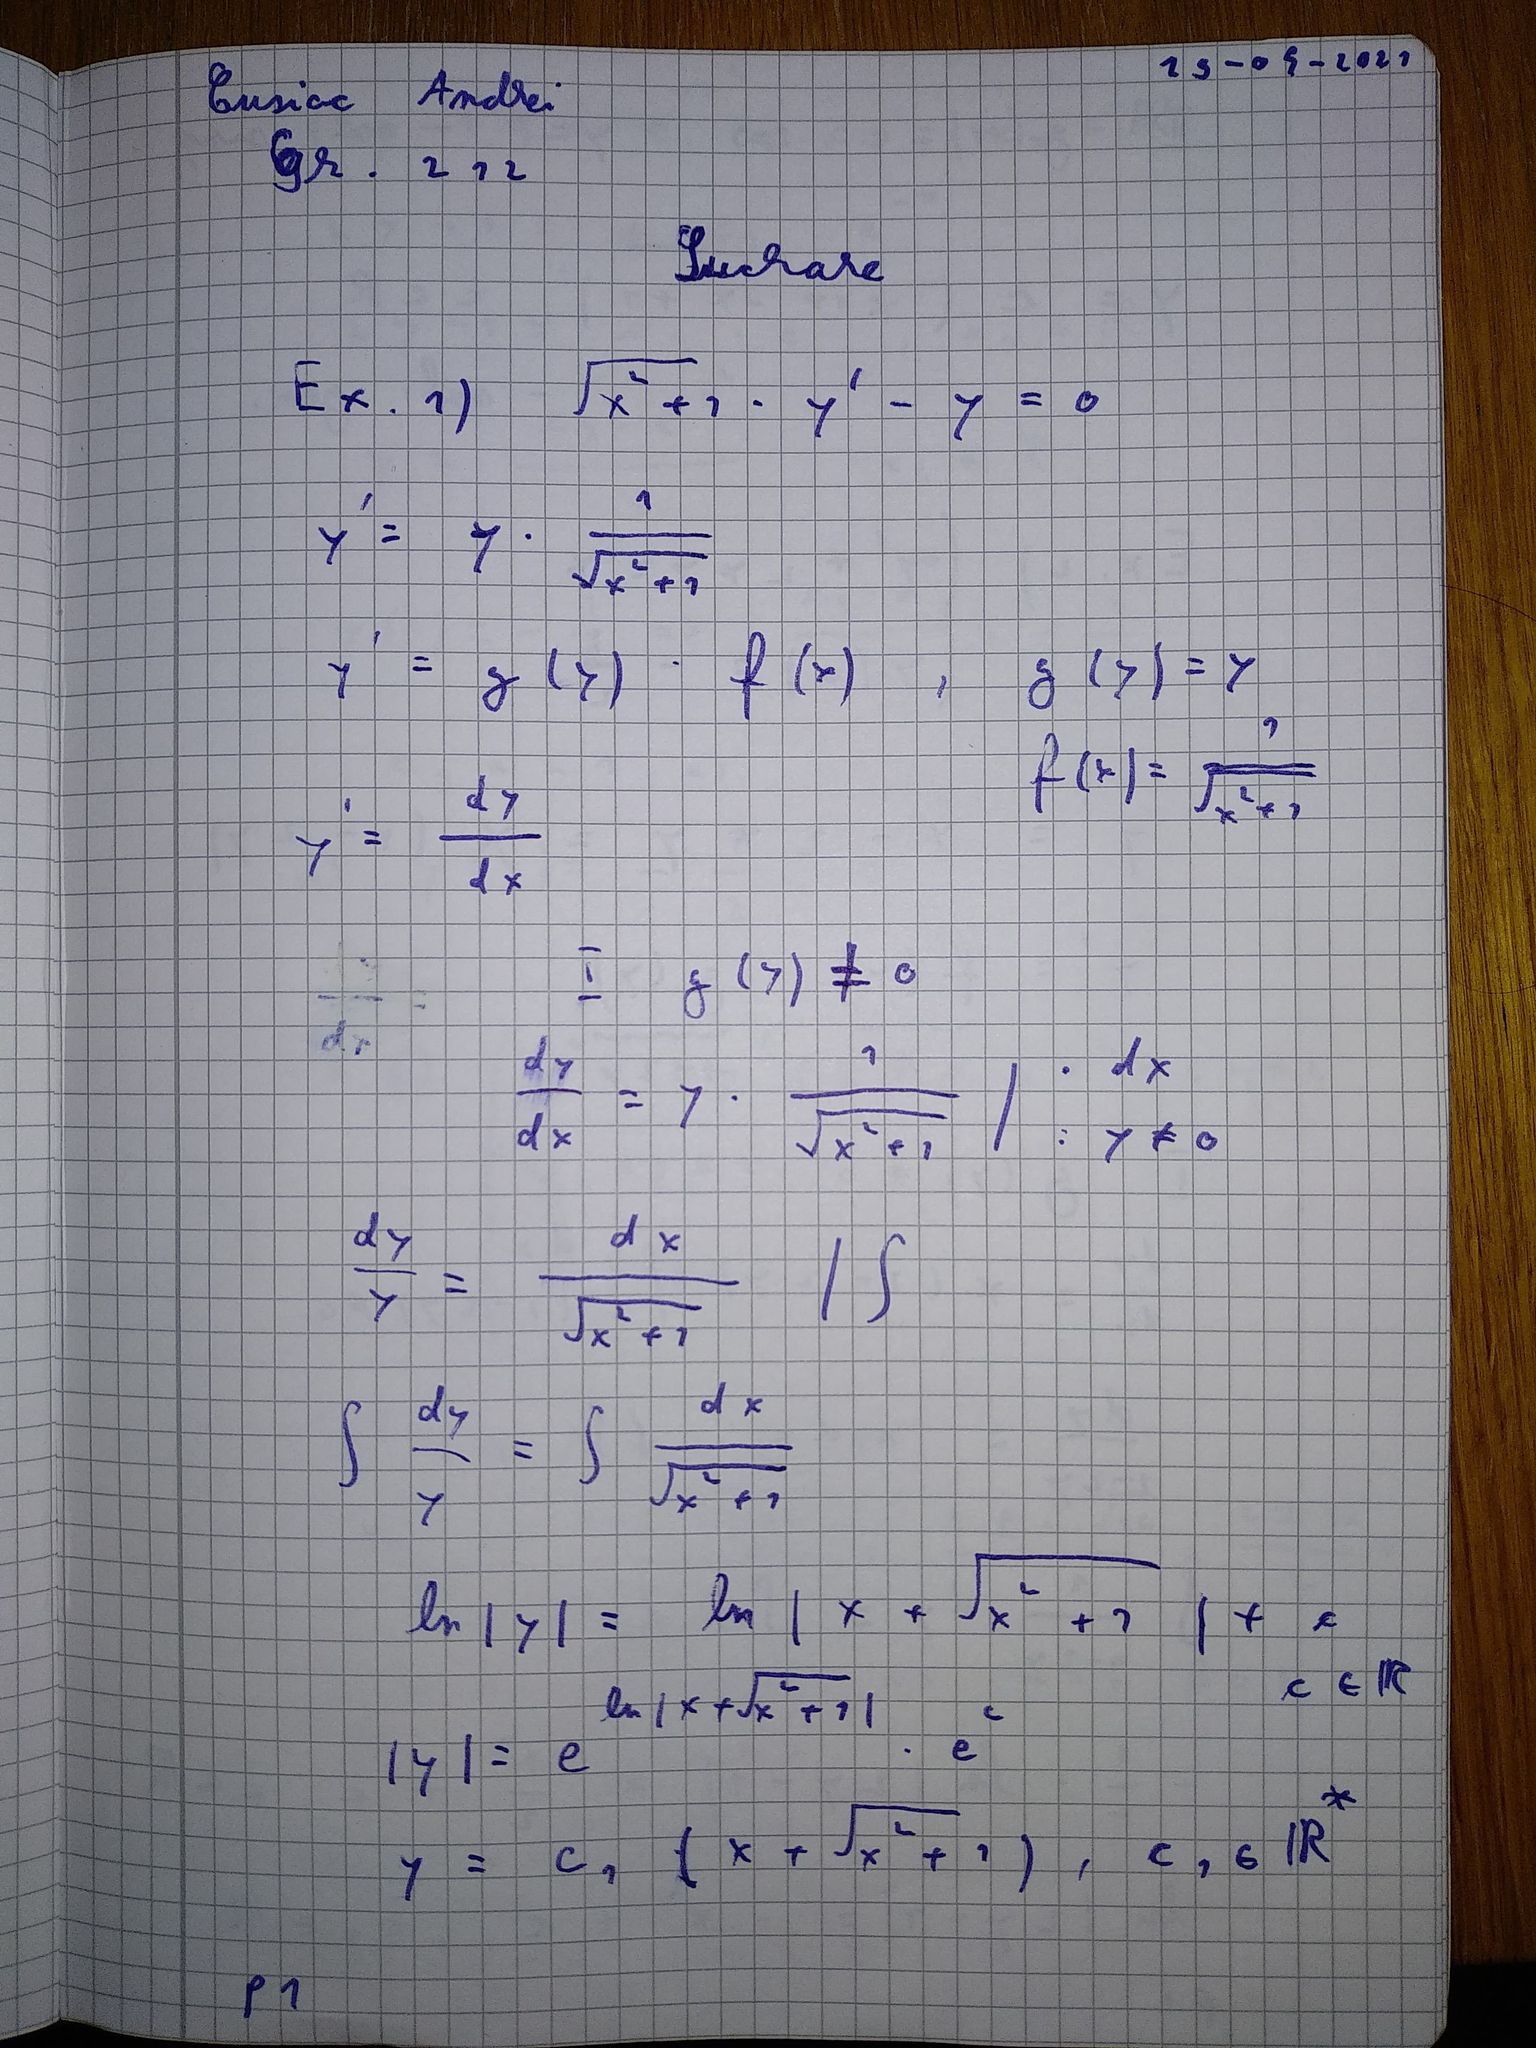 25-05-2021
Cusiac Andrei
Gr. 212
Lucrare
Ex. 1) √(x²+1) · y' - y = 0
y' = y · 1/√(x²+1)
y' = g(y) · f(x) , g(y) = y
f(x) = 1/√(x²+1)
y' = dy/dx
I g(y) ≠ 0
dy/dx = y · 1/√(x²+1) | · dx
: y ≠ 0
dy/y = dx/√(x²+1) | ∫
∫ dy/y = ∫ dx/√(x²+1)
ln|y| = ln|x + √(x²+1)| + c
c ∈ ℝ
|y| = e^(ln|x+√(x²+1)|) · e^c
y = c₁ (x + √(x²+1)), c₁ ∈ ℝ*
p1